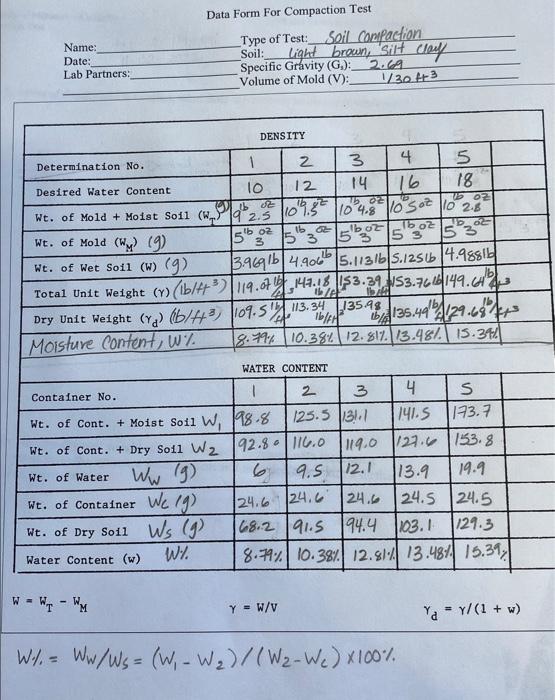 Data Form For Compaction Test
Name: Type of Test: Soil Compaction
Date: Soil: Light brown, Silt Clay
Lab Partners: Specific Gravity (Gs): 2.69
Volume of Mold (V): 1/30 ft3
DENSITY
Determination No. 1 2 3 4 5
Desired Water Content 10 12 14 16 18
Wt. of Mold + Moist Soil (WT) (g) 9 lb 2.5 oz 10 lb 1.5 oz 10 lb 4.8 oz 10 lb 5 oz 10 lb 2.8 oz
Wt. of Mold (WM) (g) 5 lb 3 oz 5 lb 3 oz 5 lb 3 oz 5 lb 3 oz 5 lb 3 oz
Wt. of Wet Soil (W) (g) 3.969 lb 4.906 lb 5.113 lb 5.125 lb 4.988 lb
Total Unit Weight (γ) (lb/ft³) 119.07 lb/ft³ 147.18 lb/ft 153.39 lb/ft 153.76 lb 149.64 lb/ft3
Dry Unit Weight (γd) (lb/ft³) 109.5 lb/ft³ 113.34 lb/ft 135.98 lb/ft 135.49 lb/ft 129.68 lb/ft3
Moisture Content, W%. 8.79% 10.38% 12.81% 13.48% 15.39%
WATER CONTENT
Container No. 1 2 3 4 5
Wt. of Cont. + Moist Soil W1 98.8 125.5 131.1 141.5 173.7
Wt. of Cont. + Dry Soil W2 92.8 116.0 119.0 127.6 153.8
Wt. of Water Ww (g) 6 9.5 12.1 13.9 19.9
Wt. of Container Wc (g) 24.6 24.6 24.6 24.5 24.5
Wt. of Dry Soil Ws (g) 68.2 91.5 94.4 103.1 129.3
Water Content (w) W%. 8.79% 10.38% 12.81% 13.48% 15.39%
W = WT - WM γ = W/V γd = γ/(1 + w)
W% = Ww/Ws = (W1 - W2)/(W2-Wc) x100%.